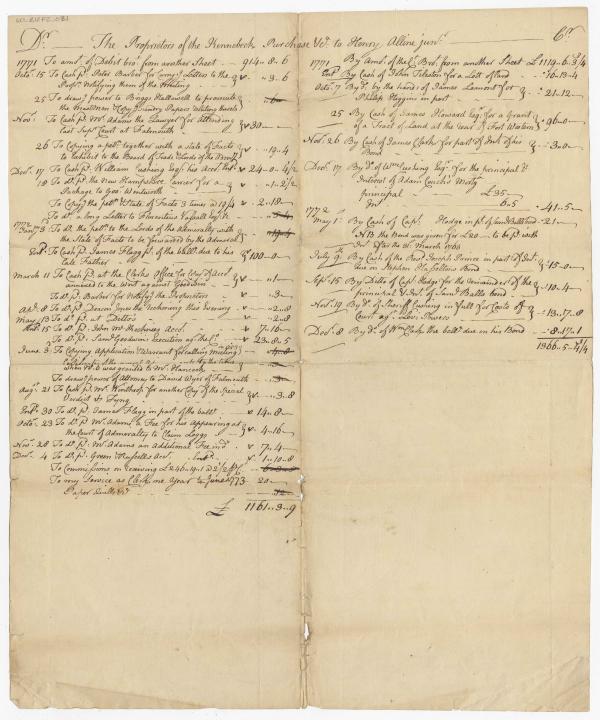 Dr. The Proprietors of the Kennebeck Purchase &c. to Henry Alline junr. Cr.
1771 To amot. of Debit bro' from another Sheet 914-8-6
Octo. 15 To Cash pd. Peter Barber for Letters to the v ..3..6
Propr. Notifying them of the Meeting
25 To draw power to Briggs Hallowell to prosecute
the
Nov. To Cash pd. Mr. Adams the Lawyer for attending v 30
last Supr. Court at Falmouth
26 To Copying a petn. together with a State of Facts v ..19..4
to exhibit to the Board of Trade Lords of the
Dec. 17 To Cash pd. William Cushing Esqr. his Acco. v 24-0-4/2
19 To Do. pd. the New Hampshire Carrier for a v ..1..2/2
Package to Gov. Wentworth
To Copy the petn. & State of Facts 3 times v 2..18
To Do. a long Letter to Florentius Vassall Esqr.
1772 To Do. the petn. to the Lords of the Admiralty with
the State of Facts to be forwarded by the Admiral
To Cash pd. James Flagg of the balla. due to his v 100-0
late Father
March 11 To Cash pd. at the Clerks Office for Copy of Acco. v ..1
annexed to the Writ against Goodwin
To Do. Barber for Notifyg the Proprietors v ..3
Apl. 8 To Do. pd. Deacon Jones the Reckoning this Evening v ..2..8
May 13 To Do. pd. at Ditto's v ..2..8
15 To Do. pd. John McKechney Acco. v 7..16
To Do. pd. Saml. Goodwin execution agt. the Co. v 23..8..5
June 3 To Copying application & Warrant for calling meeting
when Wt. was granted to Mr. Hancock
To draw power of Attorney to David Wyer of Falmouth
Augt. 21 To Cash pd. Mr. Winthrop for another Copy of the Special v ..3..8
Verdict & Tyng
30 To Do. pd. James Flagg in part of the balla. v 14..8
Octo. 23 To Do. pd. Mr. Adams a Fee for his Appearing at v 4-16
the Court of Admiralty to Claim Loggs
Nov. 28 To Do. pd. Mr. Adams an Additional Fee v 7..4
Dec. 4 To Do. pd. Green & Russells Acco. v 1..10..8
To Commissions on receiving £246..19..1 @ 2 1/2 pr. Ct.
To my Service as Clerk one Year to June 1773 20
Paper Quills &c.
£ 1161..3..9
1771 By Amot. of the Cr. Bro. from another Sheet £1114..6..3/4
By Cash of John Tileston for a Lott of Land 10..13..4
Octo. 7 By Do. by the hands of James Lamont for 21..12
Philip Higgins in part
25 By Cash of James Howard Esqr. for a Grant 96-0
of a Tract of Land at the rear of Fort Western
Nov. 26 By Cash of James Clark for part of Int. of his 3..0
Bond
Dec. 17 By Do. of Wm. Cushing Esqr. for the principal &
Interest of Adam Couch's Mortg.
principal £35
Int. 6..5 41..5
1772
May 1 By Cash of Capt. Hodge in pt. of Saml. Balls bond 21
NB. the Bond was given for £20 to be pd. with
Int. after the March 1766
July 9th By Cash of the Revd. Joseph Prince in part of Int. 15-0
due on Stephen Bond
Sepr. 15 By Ditto of Capt. Hodge for the remainder of the 10..4
principal & Int. of Saml. Balls bond
Nov. 19 By Do. of Sheriff Cushing in full for Costs of 13..17..8
Court agt. Levi Powers
Dec. 8 By Do. of Wm. Clark the balla. due on his Bond 8..17..1
1366..5..7/4